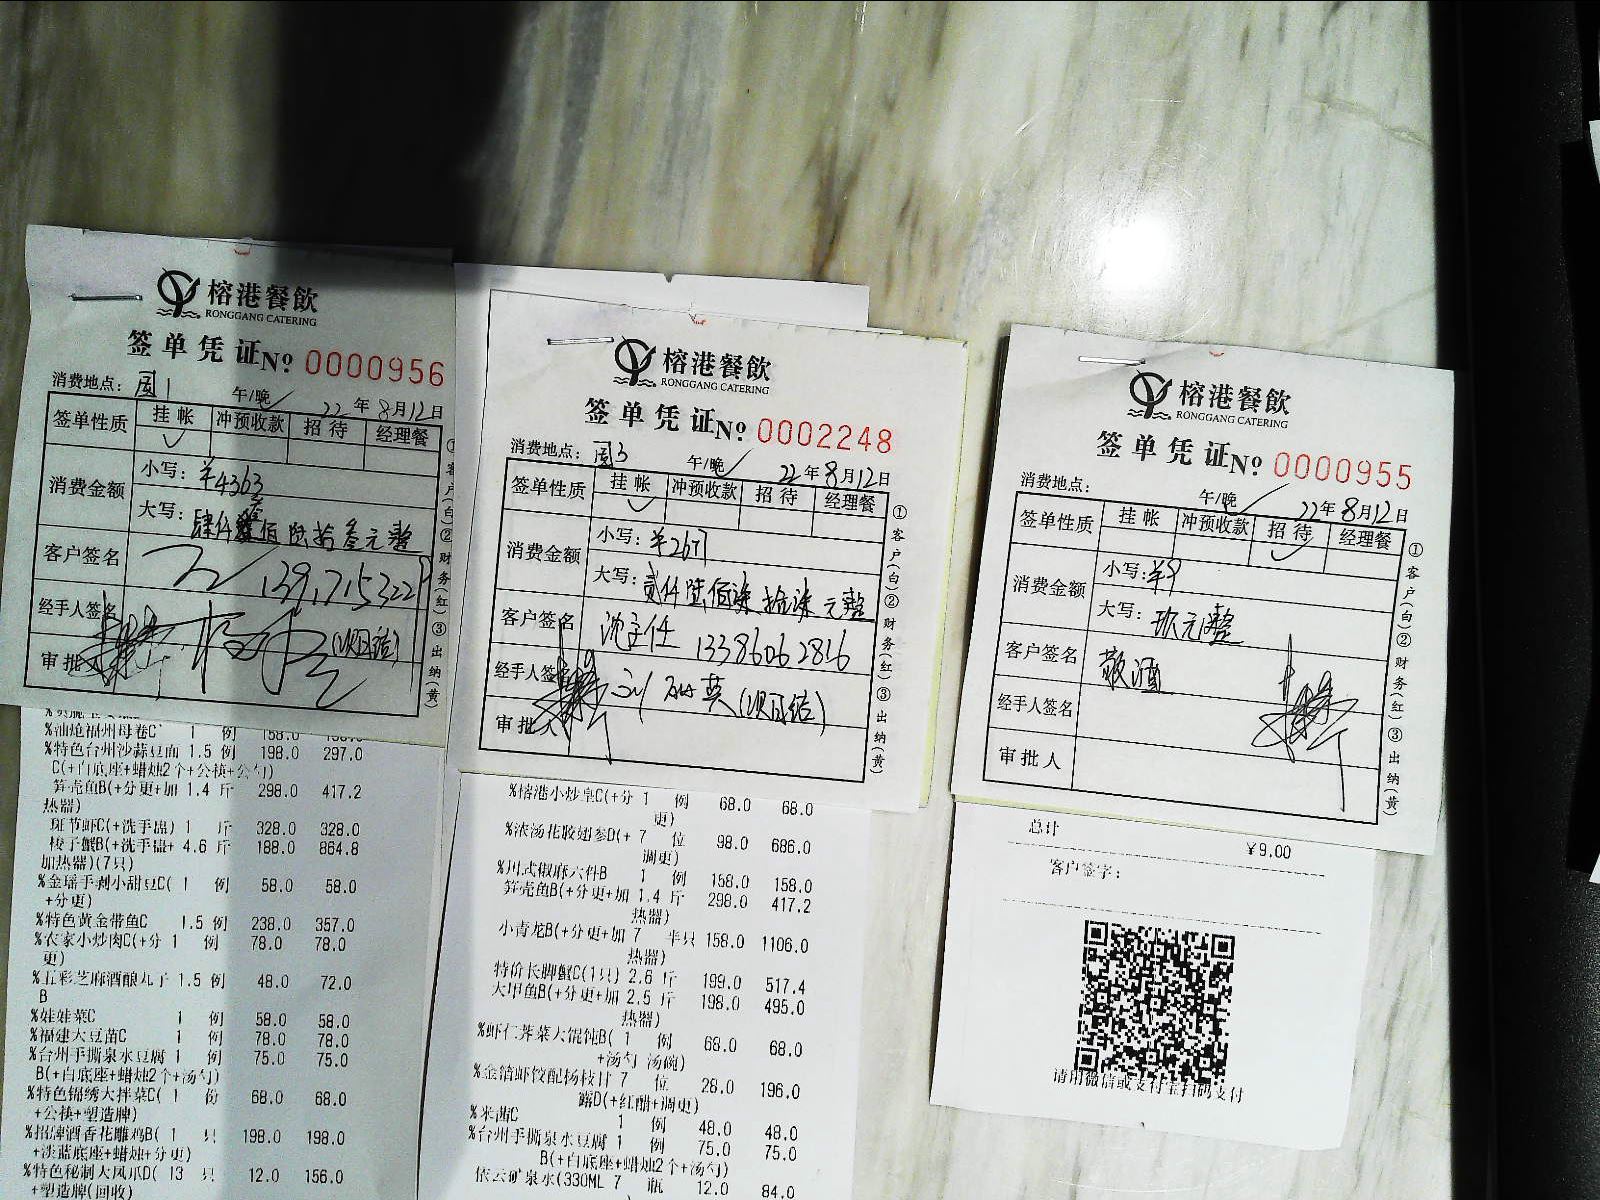 榕港餐飲
RONGGANG CATERING
签单凭证 No 0000956
消费地点：周1 午/晚 22年8月12日
签单性质 挂帐 冲预收款 招待 经理餐
消费金额 小写：¥4363
大写：肆仟叁佰陆拾叁元整
客户签名
经手人签名
审批人
①客户(白)②财务(红)③出纳(黄)
%油炝福州母卷C 1 例 158.0
%特色台州沙蒜豆面 1.5 例 198.0 297.0
C(+白底座+蜡烛2个+公筷+公勺)
笋壳鱼B(+分更+加 1.4 斤 298.0 417.2
热器)
斑节虾C(+洗手盅) 1 斤 328.0 328.0
梭子蟹B(+洗手盅+ 4.6 斤 188.0 864.8
加热器)(7只)
%金瑶手剥小甜豆C( 1 例 58.0 58.0
+分更)
%特色黄金带鱼C 1.5 例 238.0 357.0
%农家小炒肉C(+分 1 例 78.0 78.0
更)
%五彩芝麻酒酿丸子 1.5 例 48.0 72.0
B
%娃娃菜C 1 例 58.0 58.0
%福建大豆苗C 1 例 78.0 78.0
%台州手撕泉水豆腐 1 例 75.0 75.0
B(+白底座+蜡烛2个+汤勺)
%特色锦绣大拌菜C( 1 份 68.0 68.0
+公筷+塑造牌)
%招牌酒香花雕鸡B( 1 只 198.0 198.0
+浅蓝底座+蜡烛+分更)
%特色秘制大凤爪D( 13 只 12.0 156.0
+塑造牌(回收)
榕港餐飲
RONGGANG CATERING
签单凭证 No 0002248
消费地点：周3 午/晚 22年8月12日
签单性质 挂帐 冲预收款 招待 经理餐
消费金额 小写：¥2677
大写：贰仟陆佰柒拾柒元整
客户签名 沈主任 13386062816
经手人签名
审批人
①客户(白)②财务(红)③出纳(黄)
%榕港小炒皇C(+分 1 例 68.0 68.0
更)
%浓汤花胶翅参D(+ 7 位 98.0 686.0
调更)
%川式椒麻六件B 1 例 158.0 158.0
笋壳鱼B(+分更+加 1.4 斤 298.0 417.2
热器)
小青龙B(+分更+加 7 半只 158.0 1106.0
热器)
特价长脚蟹C(1只) 2.6 斤 199.0 517.4
大甲鱼B(+分更+加 2.5 斤 198.0 495.0
热器)
%虾仁荠菜大馄饨B( 1 例 68.0 68.0
+汤勺 汤碗)
%金箔虾饺配杨枝甘 7 位 28.0 196.0
露D(+红醋+调更)
%米茜C 1 例 48.0 48.0
%台州手撕泉水豆腐 1 例 75.0 75.0
B(+白底座+蜡烛2个+汤勺)
依云矿泉水(330ML 7 瓶 12.0 84.0
榕港餐飲
RONGGANG CATERING
签单凭证 No 0000955
消费地点： 午/晚 22年8月12日
签单性质 挂帐 冲预收款 招待 经理餐
消费金额 小写：¥9
大写：玖元整
客户签名 敬酒
经手人签名
审批人
①客户(白)②财务(红)③出纳(黄)
总计 ¥9.00
客户签字：
请用微信或支付宝扫码支付